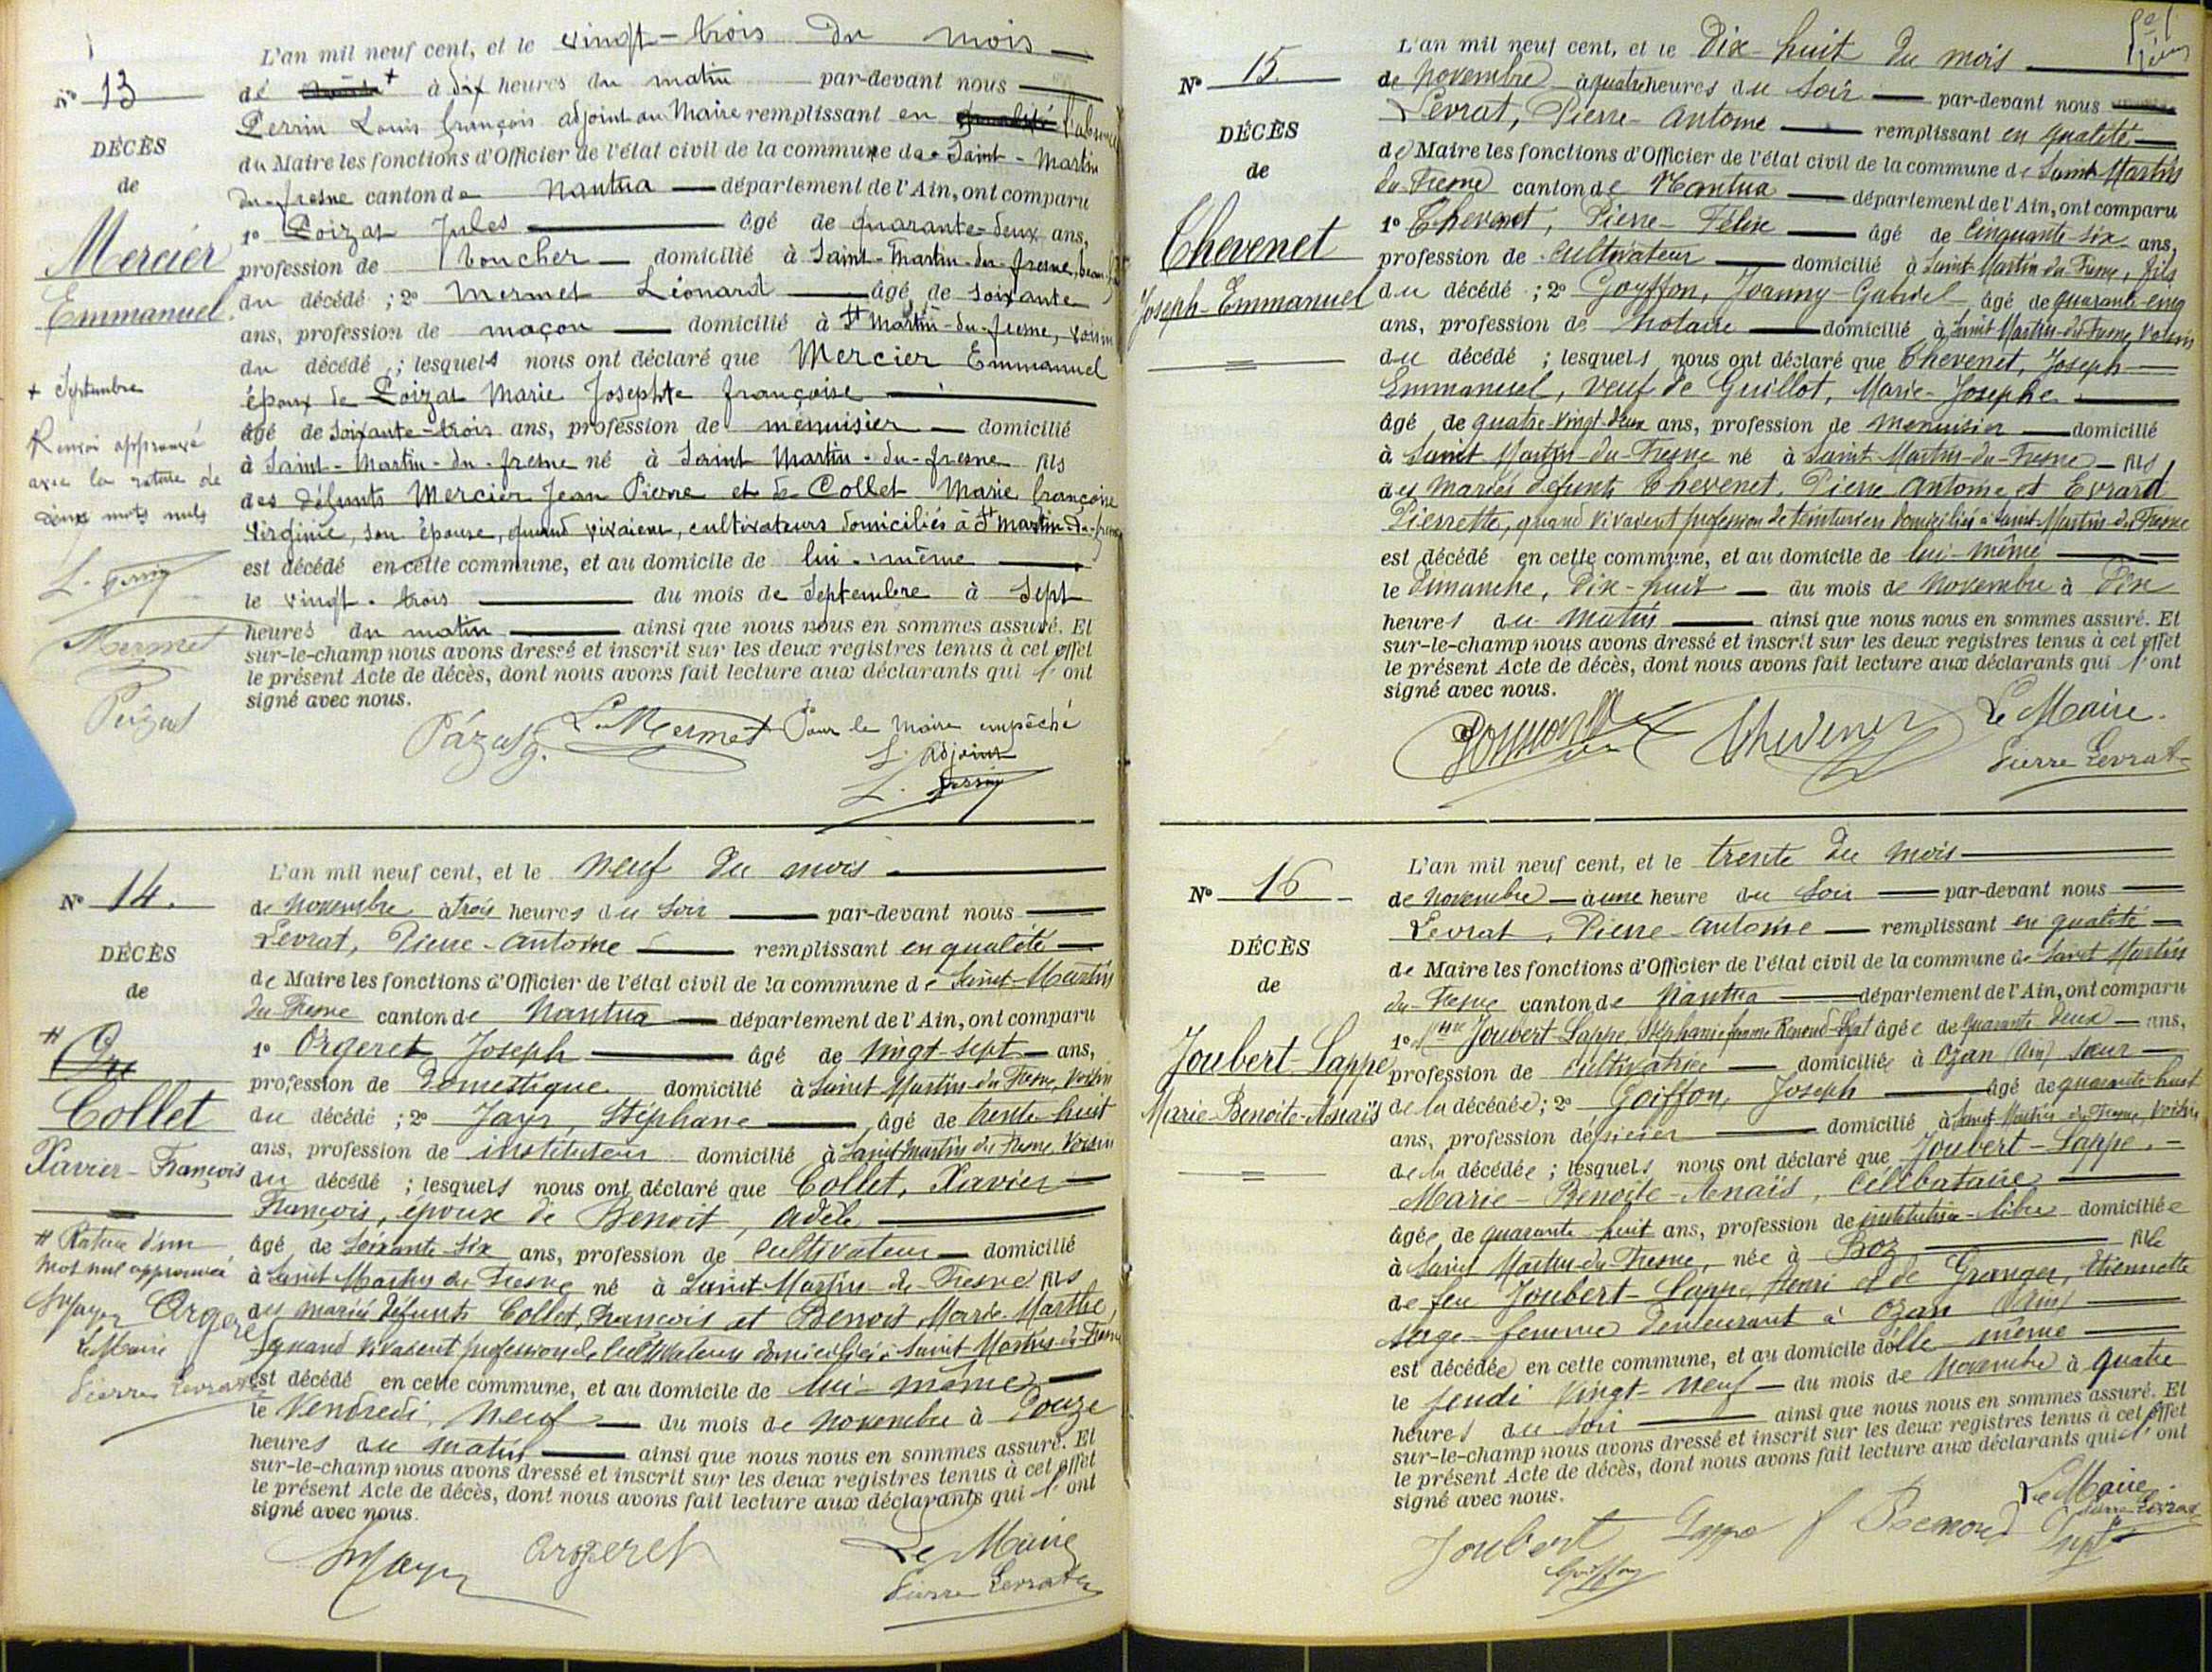 N° 13
DÉCÈS
de
Mercier
Emmanuel
+ Septembre
Renvoi approuvé
avec la rature de
deux mots nuls
L. Perrin
Mermet
L'an mil neuf cent, et le vingt-trois du mois
de + à dix heures du matin par-devant nous
Perrin Louis françois adjoint au Maire remplissant en l'absence
du Maire les fonctions d'Officier de l'état civil de la commune de Saint-Martin
du-fresne canton de Nantua département de l'Ain, ont comparu
1° Poizat Jules âgé de quarante-deux ans,
profession de boucher domicilié à Saint-Martin-du-fresne,
du décédé ; 2° Mermet Léonard âgé de soixante
ans, profession de maçon domicilié à St Martin-du-fresne, voisin
du décédé ; lesquels nous ont déclaré que Mercier Emmanuel
époux de Poizat Marie Josephte françoise
âgé de soixante-trois ans, profession de menuisier domicilié
à Saint-Martin-du-fresne né à Saint Martin-du-fresne fils
des défunts Mercier Jean Pierre et de Collet Marie françoise
Virginie, son épouse, quand vivaient, cultivateurs domiciliés à St Martin-du-fresne
est décédé en cette commune, et au domicile de lui-même
le vingt-trois du mois de Septembre à Sept
heures du matin ainsi que nous nous en sommes assuré. Et
sur-le-champ nous avons dressé et inscrit sur les deux registres tenus à cet effet
le présent Acte de décès, dont nous avons fait lecture aux déclarants qui l'ont
signé avec nous.
L. Mermet Pour le Maire empêché
L'adjoint
L. Perrin
N° 14.
DÉCÈS
de
#
Collet
Xavier-François
# Rature d'un
mot nul approuvée
Orgeret
Le Maire
Pierre Levrat
L'an mil neuf cent, et le neuf du mois
de novembre à trois heures du soir par-devant nous
Levrat, Pierre-Antoine remplissant en qualité
de Maire les fonctions d'Officier de l'état civil de la commune de Saint-Martin
du-Fresne canton de Nantua département de l'Ain, ont comparu
1° Orgeret Joseph âgé de vingt-sept ans,
profession de domestique domicilié à Saint Martin-du-Fresne, voisin
du décédé ; 2° Jayr, Stéphane âgé de trente-huit
ans, profession de instituteur domicilié à Saint Martin du Fresne, voisin
du décédé ; lesquels nous ont déclaré que Collet, Xavier
François, époux de Benoit, Adèle
âgé de soixante-six ans, profession de cultivateur domicilié
à Saint Martin du Fresne né à Saint-Martin-du-Fresne fils
des mariés défunts Collet, François et Benoit Marie-Marthe,
quand vivaient profession de cultivateurs domiciliés à Saint-Martin-du-Fresne
est décédé en cette commune, et au domicile de lui-même
le Vendredi, neuf du mois de novembre à Douze
heures du matin ainsi que nous nous en sommes assuré. Et
sur-le-champ nous avons dressé et inscrit sur les deux registres tenus à cet effet
le présent Acte de décès, dont nous avons fait lecture aux déclarants qui l'ont
signé avec nous.
Orgeret Le Maire
Pierre Levrat
N° 15.
DÉCÈS
de
Chevenet
Joseph-Emmanuel
L'an mil neuf cent, et le Dix-huit du mois
de novembre à quatre heures du soir par-devant nous
Levrat, Pierre-Antoine remplissant en qualité
de Maire les fonctions d'Officier de l'état civil de la commune de Saint Martin
du Fresne canton de Nantua département de l'Ain, ont comparu
1° Chevenet, Pierre-Félix âgé de cinquante-six ans,
profession de cultivateur domicilié à Saint-Martin-du-Fresne, fils
du décédé ; 2° Goyffon, Joanny-Gabriel âgé de quarante cinq
ans, profession de notaire domicilié à Saint Martin-du-Fresne, voisin
du décédé ; lesquels nous ont déclaré que Chevenet, Joseph
Emmanuel, veuf de Guillot, Marie-Josephe
âgé de quatre-vingt-deux ans, profession de menuisier domicilié
à Saint Martin-du-Fresne né à Saint-Martin-du-Fresne fils
des mariés défunts Chevenet, Pierre Antoine et Evrard
Pierrette, quand vivaient profession de teinturiers domiciliés à Saint-Martin-du-Fresne
est décédé en cette commune, et au domicile de lui-même
le dimanche, Dix-huit du mois de novembre à Dix
heures du matin ainsi que nous nous en sommes assuré. Et
sur-le-champ nous avons dressé et inscrit sur les deux registres tenus à cet effet
le présent Acte de décès, dont nous avons fait lecture aux déclarants qui l'ont
signé avec nous.
Chevenet Le Maire.
Pierre Levrat
N° 16
DÉCÈS
de
Joubert-Lappe
Marie-Benoite-Anaïs
L'an mil neuf cent, et le trente du mois
de novembre à une heure du soir par-devant nous
Levrat, Pierre-Antoine remplissant en qualité
de Maire les fonctions d'Officier de l'état civil de la commune de Saint Martin
du-Fresne canton de Nantua département de l'Ain, ont comparu
1° Joubert-Lappe, Stéphanie femme âgée de quarante deux ans,
profession de cultivatrice domiciliée à Ozan (Ain) sœur
de la décédée ; 2° Goiffon, Joseph âgé de quarante-huit
ans, profession d'épicier domicilié à Saint-Martin-du-Fresne, voisin
de la décédée ; lesquels nous ont déclaré que Joubert-Lappe,
Marie-Benoite-Anaïs, célibataire
âgée de quarante huit ans, profession de institutrice-libre domiciliée
à Saint Martin-du-Fresne, née à Boz fille
de feu Joubert-Lappe, Henri et de Granger, Etiennette
sage-femme demeurant à Ozan (Ain)
est décédée en cette commune, et au domicile d'elle-même
le jeudi vingt-neuf du mois de novembre à quatre
heures du soir ainsi que nous nous en sommes assuré. Et
sur-le-champ nous avons dressé et inscrit sur les deux registres tenus à cet effet
le présent Acte de décès, dont nous avons fait lecture aux déclarants qui l'ont
signé avec nous.
Joubert Lappe f Le Maire
Goiffon Pierre Levrat